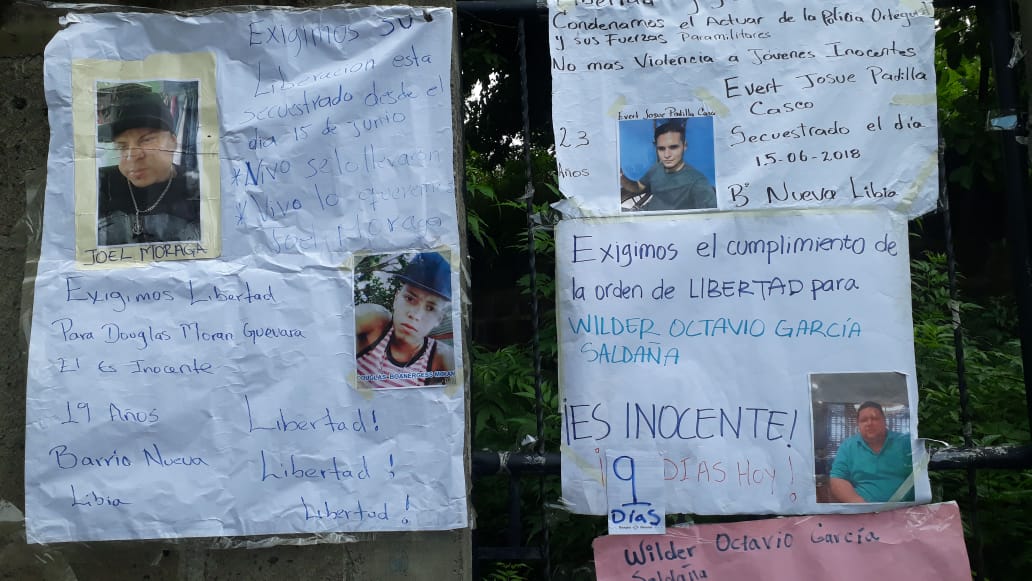 Exigimos su
Liberacion esta
secuestrado desde el
dia 15 de junio
*Vivo se lo llevaron
*Vivo lo queremos
Joel Moraga
JOEL MORAGA
Exigimos Libertad
Para Douglas Moran Guevara
El Es Inocente
DOUGLAS BOANERGESS MORAN
19 Años
Barrio Nueva
Libia
Libertad!
Libertad!
Libertad!
Condenamos el Actuar de la Policia Orteguista
y sus Fuerzas Paramilitares
No mas Violencia a Jóvenes Inocentes
Evert Josue Padilla
Casco
Evert Josue Padilla Casco
23
Años
Secuestrado el día
15-06-2018
Bº Nueva Libia
Exigimos el cumplimiento de
la orden de LIBERTAD para
WILDER OCTAVIO GARCÍA
SALDAÑA
¡ES INOCENTE!
¡9 DIAS HOY!
Días
Wilder Octavio García
Saldaña